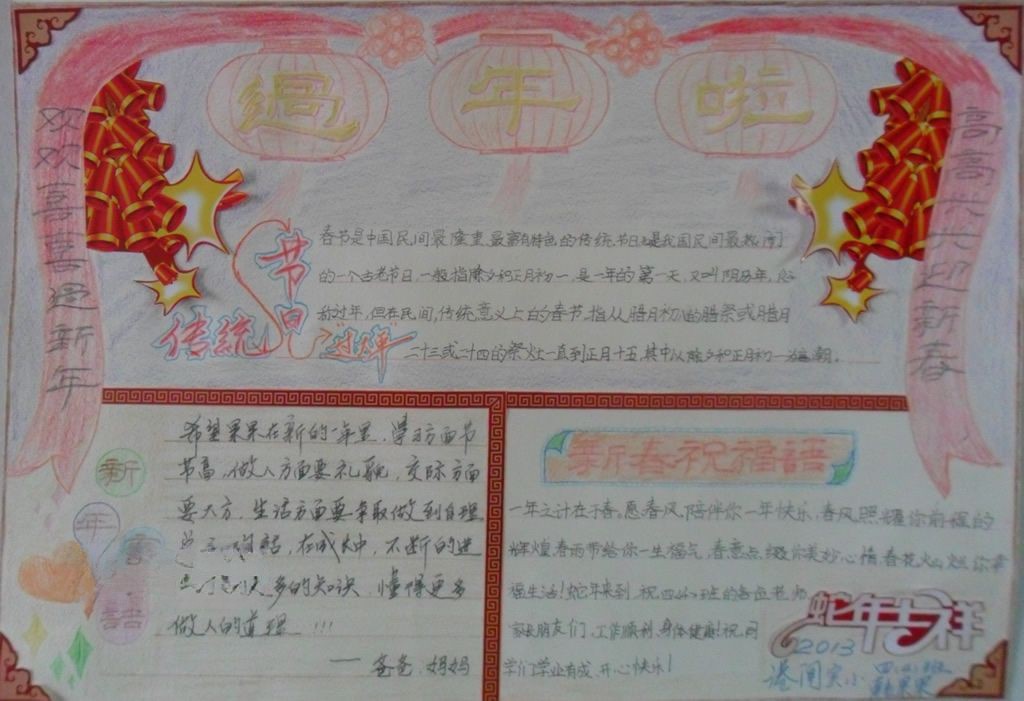 過年啦
欢欢喜喜迎新年
高高兴兴迎新春
传统节日"过年"
春节是中国民间最隆重最富有特色的传统节日也是我国民间最热闹
的一个古老节日,一般指除夕和正月初一,是一年的第一天,又叫阴历年,俗
称过年,但在民间,传统意义上的春节,指从腊月初八的腊祭或腊月
二十三或二十四的祭灶一直到正月十五,其中以除夕和正月初一为高潮.
新年
希望果果在新的一年里,学习方面节
节高,做人方面要礼貌,交际方面
要大方,生活方面要争取做到自理
在成长中,不断的进
多的知识,懂得更多
做人的道理!!!
——爸爸.妈妈
新春祝福语
一年之计在于春。愿春风,陪伴你一年快乐,春风照耀你前程的
辉煌,春雨带给你一生福气,春意点缀你美妙心情,春花灿烂你幸
福生活!蛇年来到,祝四(4)班的各位老师,
家长朋友们,工作顺利,身体健康!祝同
学们学业有成,开心快乐!
蛇年吉祥
2013
港闸实小